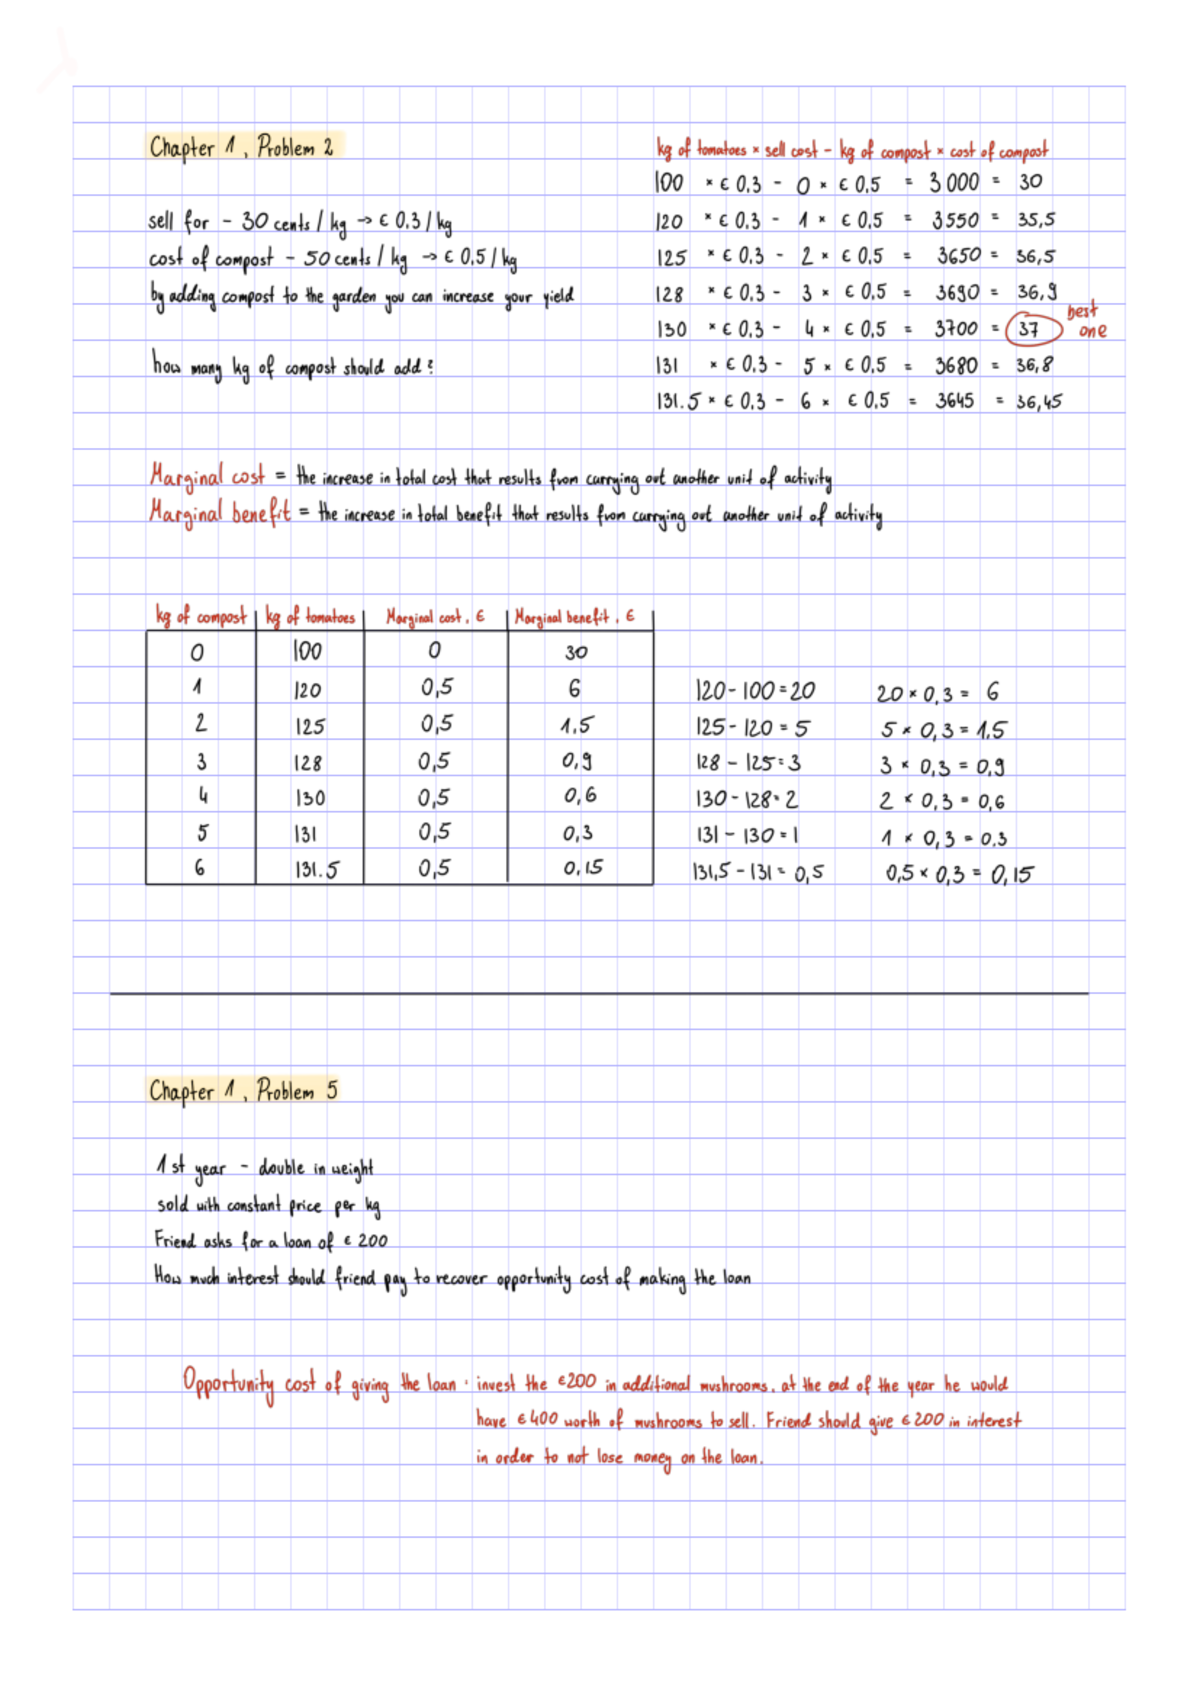 Chapter 1, Problem 2
sell for - 30 cents / kg → € 0.3 / kg
cost of compost - 50 cents / kg → € 0.5 / kg
by adding compost to the garden you can increase your yield
how many kg of compost should add?
kg of tomatoes × sell cost - kg of compost × cost of compost
100 × € 0.3 - 0 × € 0.5 = 3000 = 30
120 × € 0.3 - 1 × € 0.5 = 3550 = 35,5
125 × € 0.3 - 2 × € 0.5 = 3650 = 36,5
128 × € 0.3 - 3 × € 0.5 = 3690 = 36,9
130 × € 0.3 - 4 × € 0.5 = 3700 = 37 best one
131 × € 0.3 - 5 × € 0.5 = 3680 = 36,8
131.5 × € 0.3 - 6 × € 0.5 = 3645 = 36,45
Marginal cost = the increase in total cost that results from carrying out another unit of activity
Marginal benefit = the increase in total benefit that results from carrying out another unit of activity
kg of compost kg of tomatoes Marginal cost, € Marginal benefit, €
0 100 0 30
1 120 0,5 6 120 - 100 = 20 20 × 0,3 = 6
2 125 0,5 1,5 125 - 120 = 5 5 × 0,3 = 1.5
3 128 0,5 0,9 128 - 125 = 3 3 × 0,3 = 0,9
4 130 0,5 0,6 130 - 128 = 2 2 × 0,3 = 0,6
5 131 0,5 0,3 131 - 130 = 1 1 × 0,3 = 0.3
6 131.5 0,5 0,15 131,5 - 131 = 0,5 0,5 × 0,3 = 0,15
Chapter 1, Problem 5
1st year - double in weight
sold with constant price per kg
Friend asks for a loan of € 200
How much interest should friend pay to recover opportunity cost of making the loan
Opportunity cost of giving the loan : invest the €200 in additional mushrooms. at the end of the year he would
have €400 worth of mushrooms to sell. Friend should give €200 in interest
in order to not lose money on the loan.